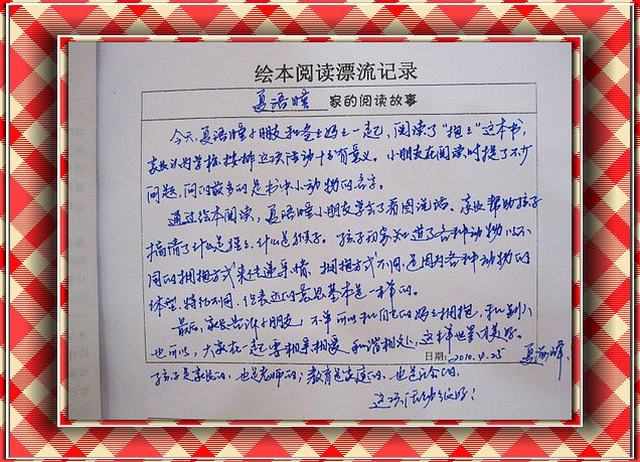 绘本阅读漂流记录
夏语曈 家的阅读故事
今天，夏语曈小朋友和爸爸妈妈一起，阅读了“抱抱”这本书，
家长认为学校安排这项活动十分有意义。小朋友在阅读时提了不少
问题，问的最多的是书中小动物的名字。
通过绘本阅读，夏语曈小朋友学会了看图说话、家长帮助孩子
搞清了什么是猩猩，什么是猴子。孩子初步知道了各种动物以不
同的拥抱方式来传递亲情，拥抱方式不同，是因为各种动物的
体型、特征不同，但表达的意思基本是一样的。
最后，家长告诉小朋友，不单可以和自己的妈妈拥抱，和别人
也可以，大家在一起要相亲相爱，和谐相处，这样世界有美好。
日期：2010.4.25
孩子是家长的，也是老师的；教育是家庭的，也是社会的，
这项活动很好！